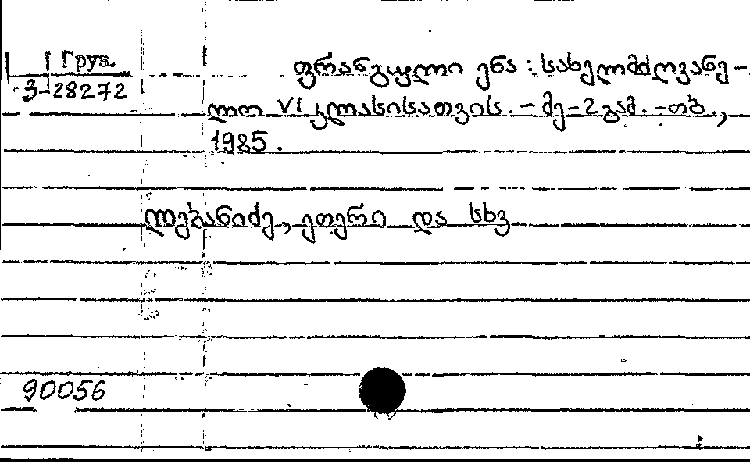 Груз.
3-28272
ფრანგული ენა : სახელმძღვანე-
ლო VI კლასისათვის. - მე-2 გამ. - თბ.,
1985.
ლებანიძე, ეთერი და სხვ
90056